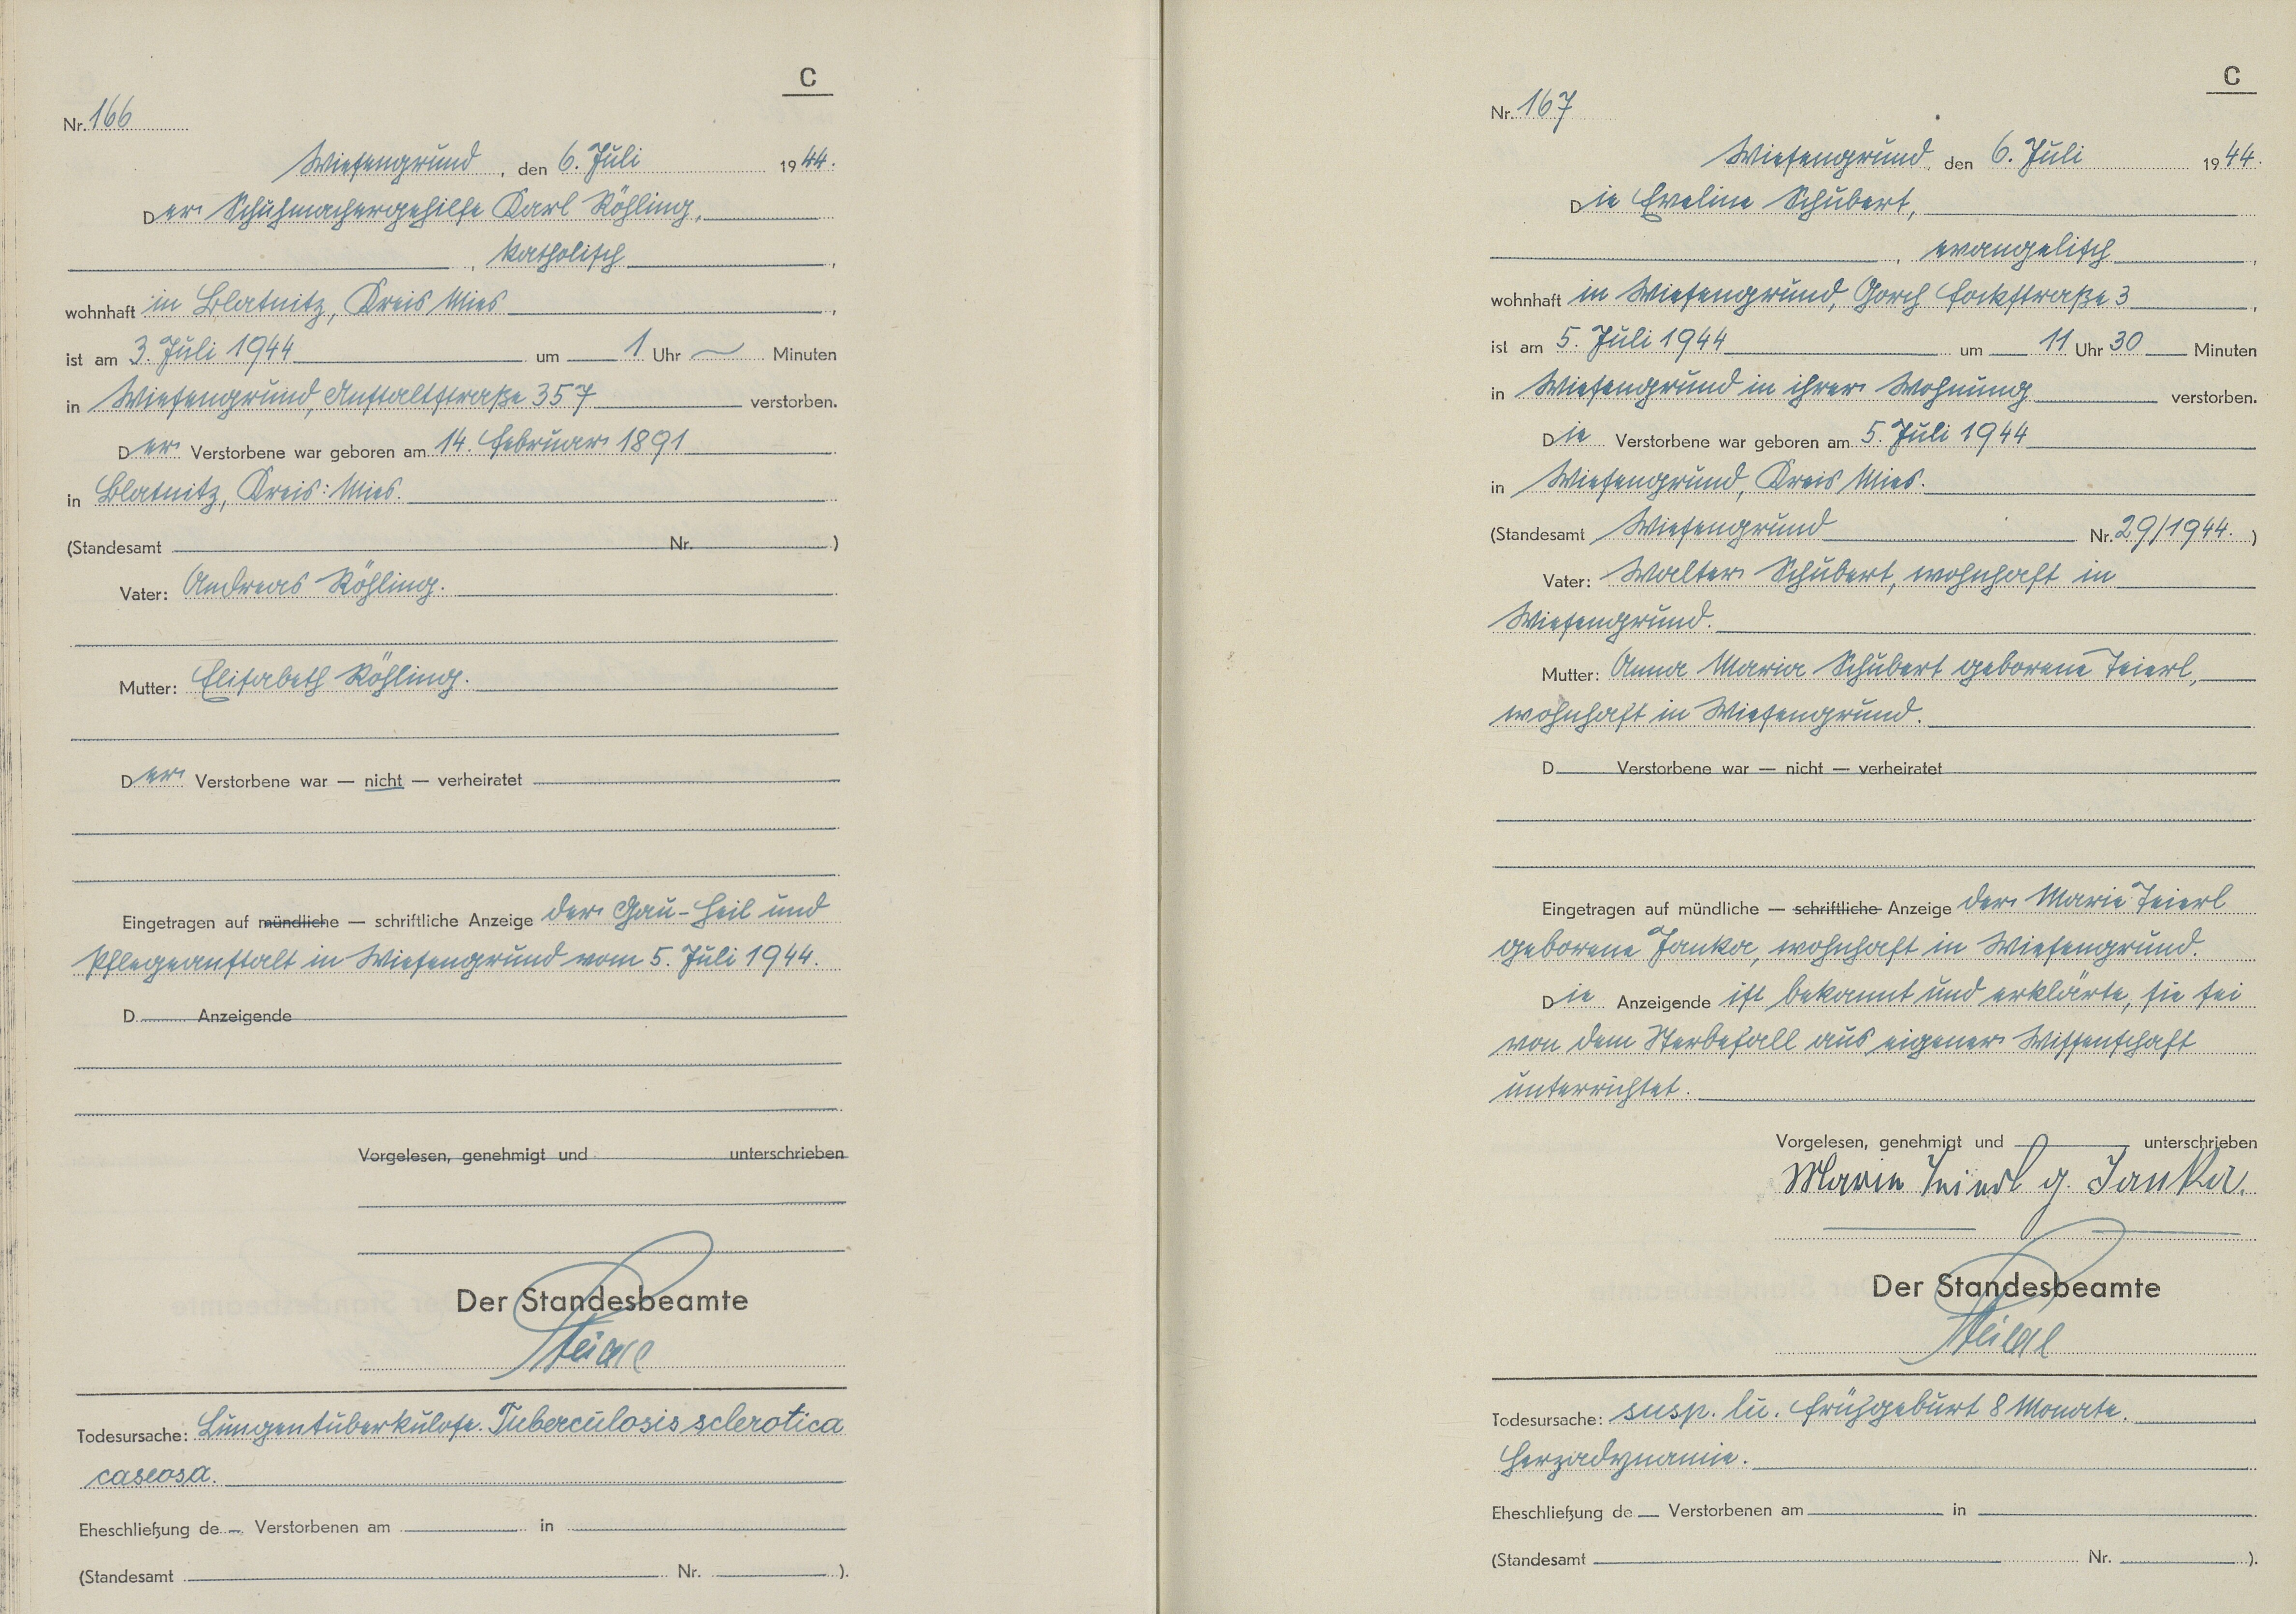 C
Nr. 166
Wiesengrund, den 6. Juli 1944.
Der Schuhmachergehilfe Karl Röhling,
, katholisch,
wohnhaft in Blatnitz, Kreis Mies,
ist am 3. Juli 1944 um 1 Uhr Minuten
in Wiesengrund, Anstaltstraße 357 verstorben.
Der Verstorbene war geboren am 14. Februar 1891
in Blatnitz, Kreis: Mies.
(Standesamt Nr. )
Vater: Andreas Röhling.
Mutter: Elisabeth Röhling.
Der Verstorbene war — nicht — verheiratet
Eingetragen auf mündliche — schriftliche Anzeige der Gau-Heil und
Pflegeanstalt in Wiesengrund vom 5. Juli 1944.
D Anzeigende
Vorgelesen, genehmigt und unterschrieben
Der Standesbeamte
Todesursache: Lungentuberkulose. Tuberculosis sclerotica
caseosa.
Eheschließung de Verstorbenen am in
(Standesamt Nr. ).
C
Nr. 167
Wiesengrund, den 6. Juli 1944.
Die Eveline Schubert,
, evangelisch,
wohnhaft in Wiesengrund, Gorch Fockstraße 3,
ist am 5. Juli 1944 um 11 Uhr 30 Minuten
in Wiesengrund in ihrer Wohnung verstorben.
Die Verstorbene war geboren am 5. Juli 1944
in Wiesengrund, Kreis Mies.
(Standesamt Wiesengrund Nr. 29/1944.)
Vater: Walter Schubert, wohnhaft in
Wiesengrund.
Mutter: Anna Maria Schubert geborene Teierl,
wohnhaft in Wiesengrund.
D Verstorbene war — nicht — verheiratet
Eingetragen auf mündliche — schriftliche Anzeige der Marie Teierl
geborene Janka, wohnhaft in Wiesengrund.
Die Anzeigende ist bekannt und erklärte, sie sei
von dem Sterbefall aus eigener Wissenschaft
unterrichtet.
Vorgelesen, genehmigt und unterschrieben
Marie Teierl g. Janka.
Der Standesbeamte
Todesursache: susp. lu. Frühgeburt 8 Monate.
Herzadynamie.
Eheschließung de Verstorbenen am in
(Standesamt Nr. ).